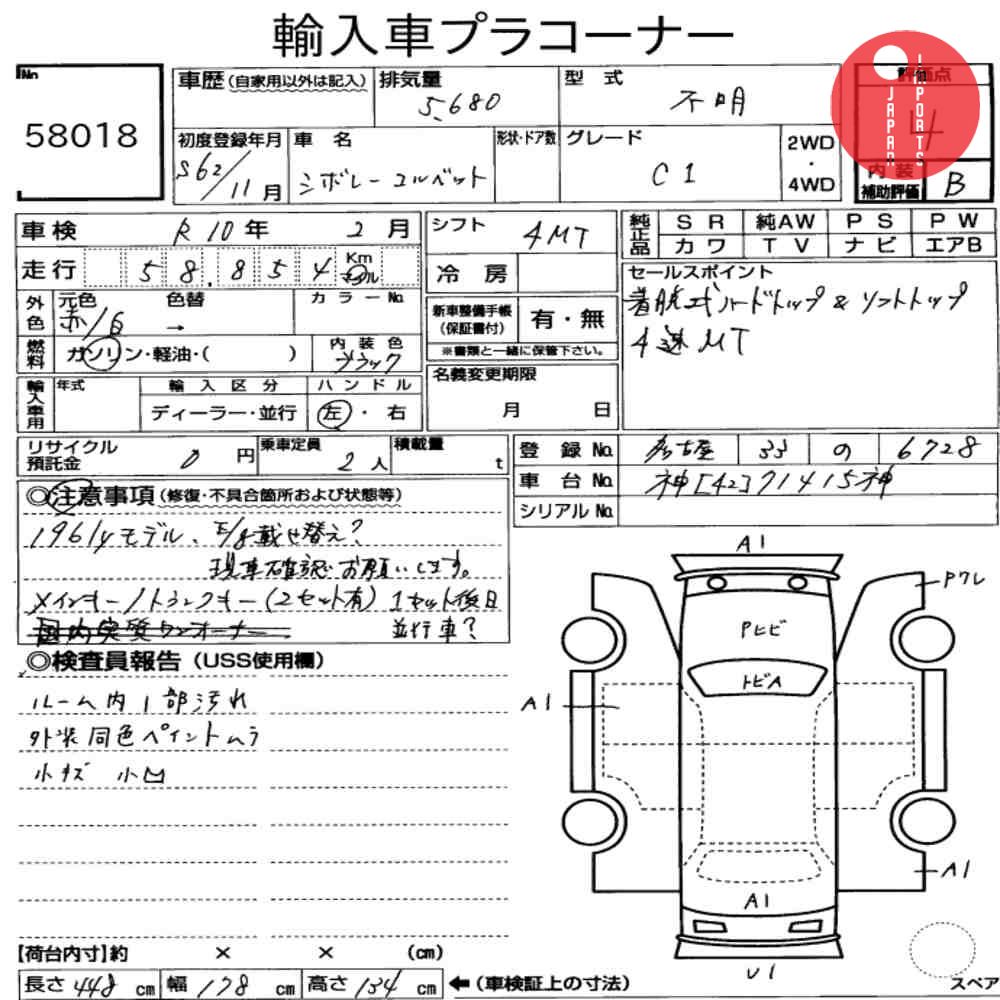 輸入車プラコーナー
JAPAN IMPORTS
No 58018
車歴(自家用以外は記入) 排気量 5,680 型式 不明 評価点 4
初度登録年月 S62/11月 車名 シボレーコルベット 形状・ドア数 グレード C1 2WD・4WD 内装補助評価 B
車検 R10年 2月 シフト 4MT 純正品 SR 純AW PS PW
カワ TV ナビ エアB
走行 58,854 Km マイル 冷房 セールスポイント
着脱式ハードトップ & ソフトトップ
4速MT
外色 元色 赤/白 色替 → カラーNo. 新車整備手帳(保証書付) 有・無
※書類と一緒に保管下さい。
燃料 ガソリン・軽油・( ) 内装色 ブラック
名義変更期限 月 日
輸入車用 年式 輸入区分 ハンドル
ディーラー・並行 左・右
リサイクル預託金 0円 乗車定員 2人 積載量 t
登録No. 名古屋 33 の 6728
車台No. 神[42]71415神
シリアルNo.
◎注意事項(修復・不具合箇所および状態等)
1961yモデル、E/g載せ替え?
現車確認お願いします。
メインキー/トランクキー(2セット有) 1セット後日
国内実質ワンオーナー. 並行車?
◎検査員報告(USS使用欄)
ルーム内1部汚れ
外装同色ペイントムラ
小キズ 小凹
A1
Pワレ
Pヒビ
トビA
A1
A1
A1
U1
スペア
【荷台内寸】約 × × (cm)
長さ 448 cm 幅 178 cm 高さ 134 cm ←(車検証上の寸法)